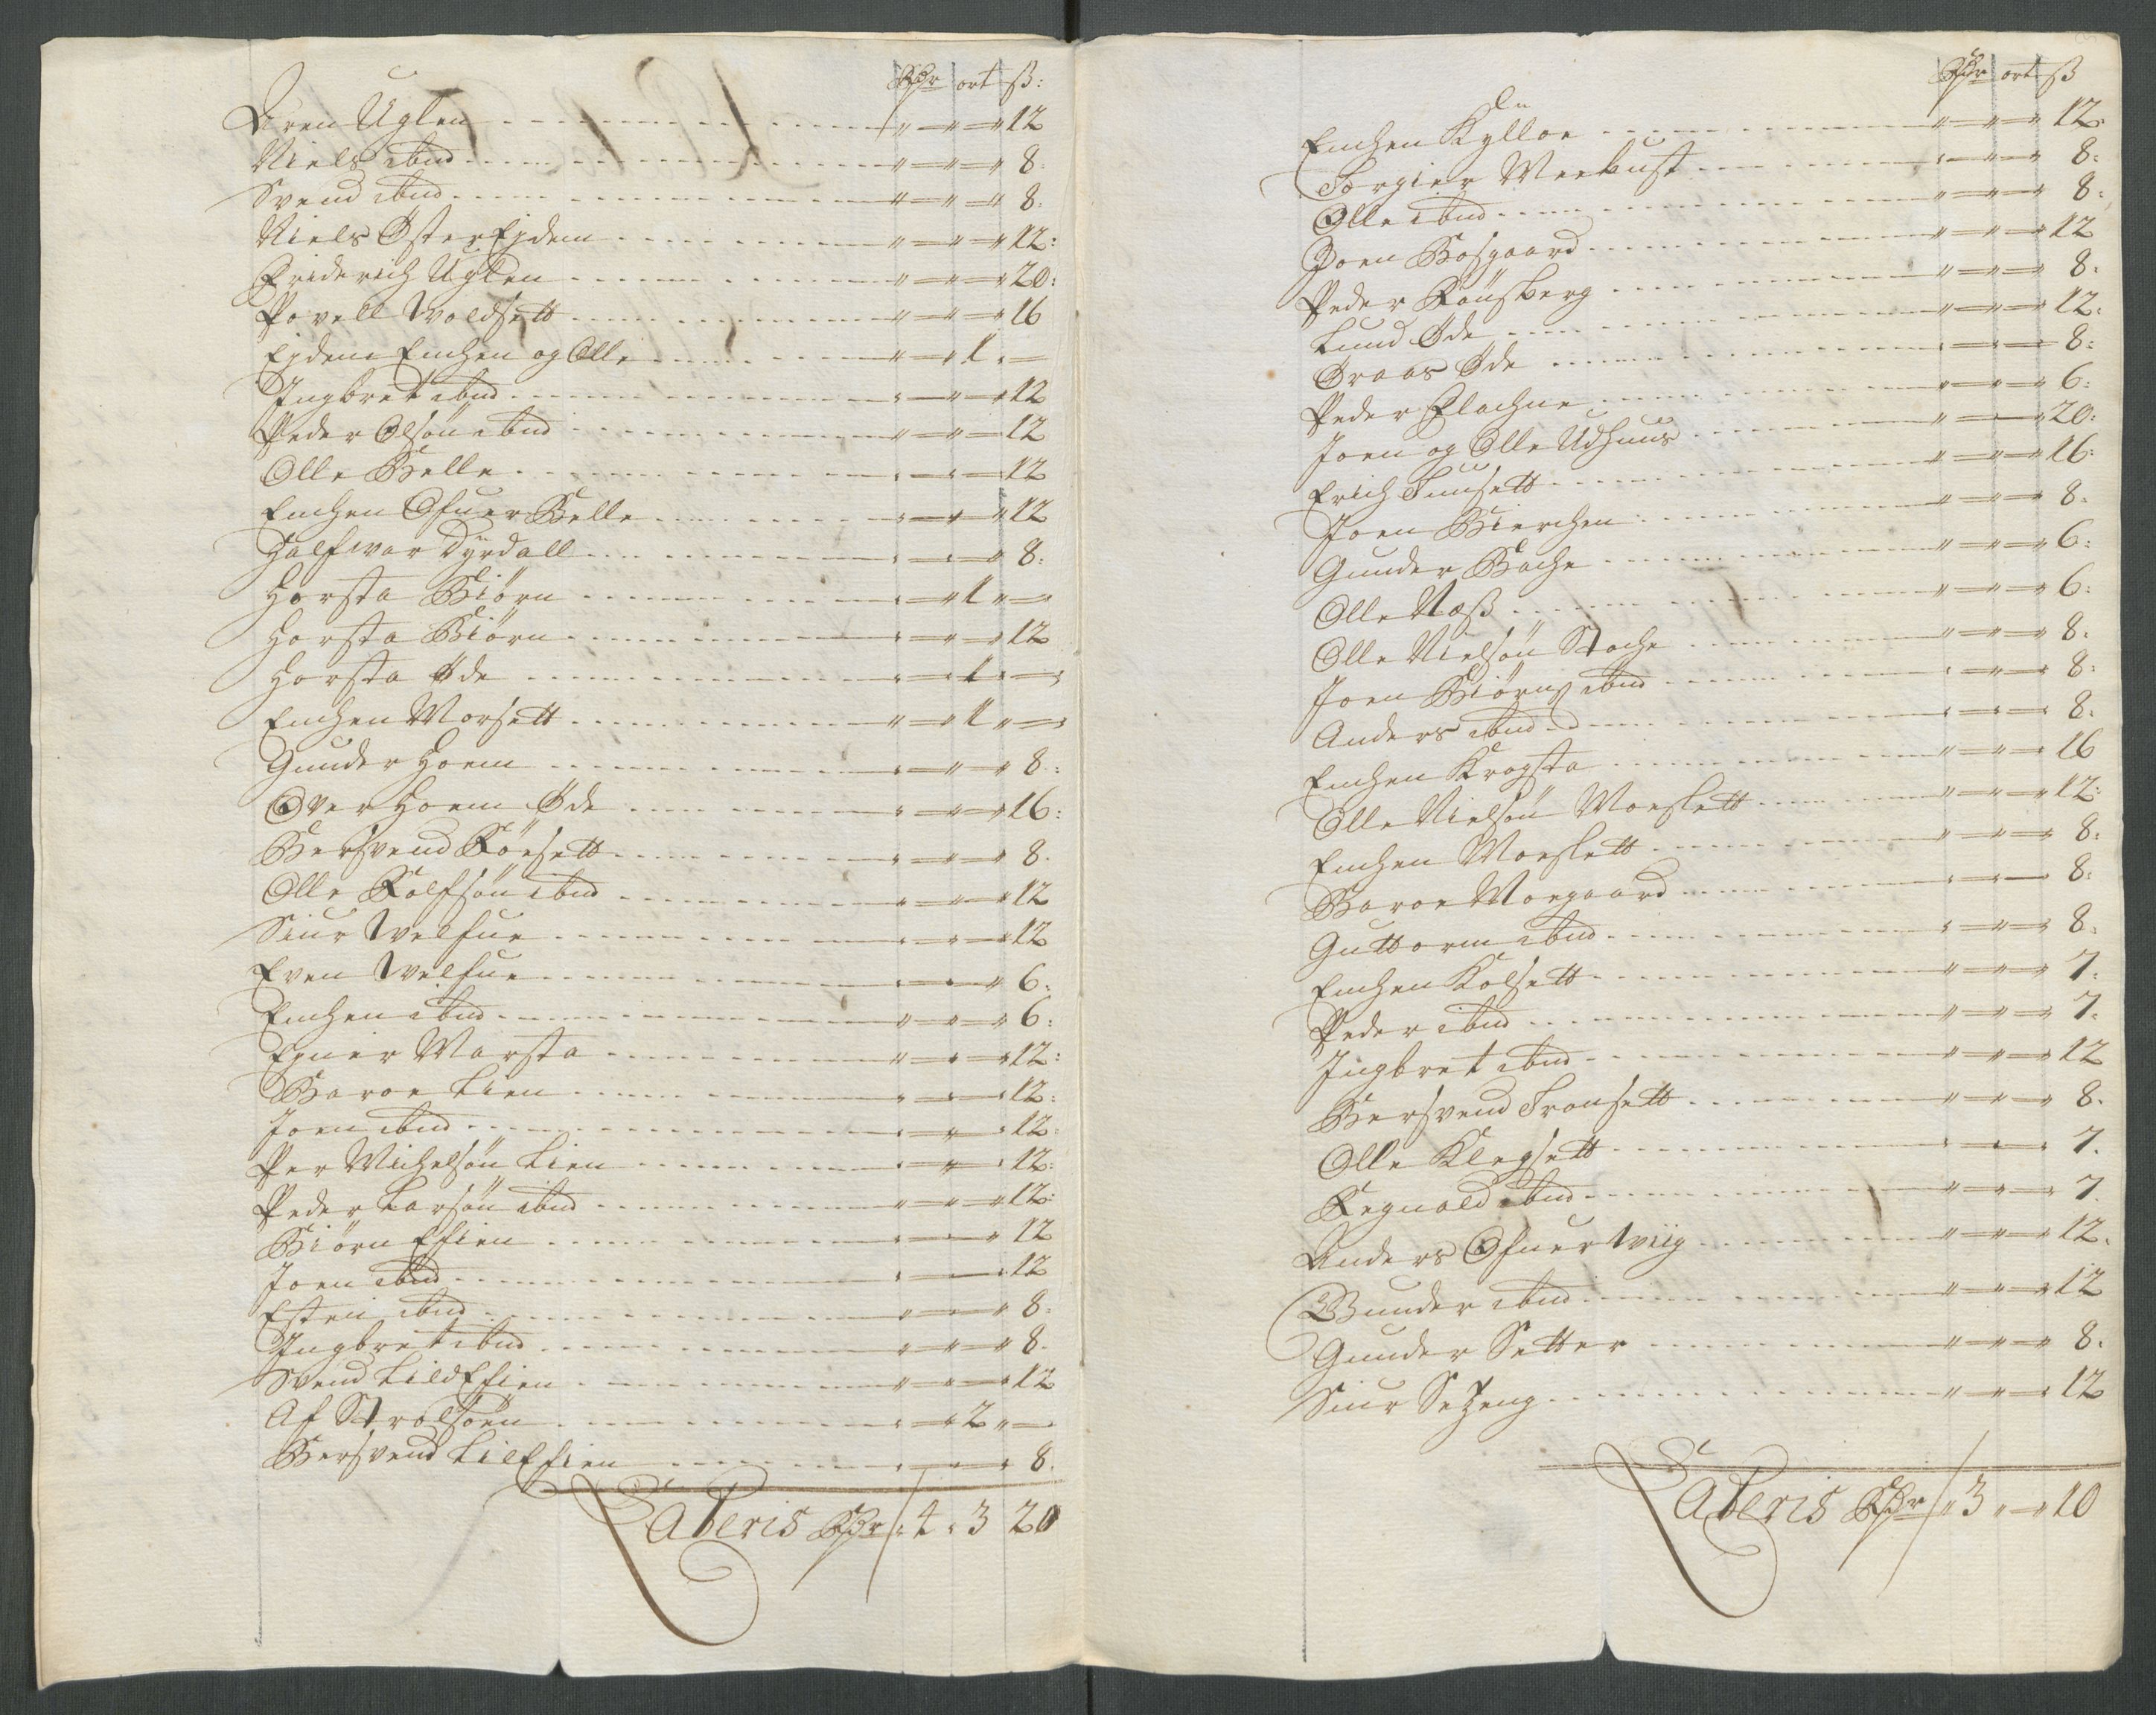 Rdr ort ß:
Aren Uglen 12
Niels ibnd 8:
Svend ibnd 8:
Niels Øster Eidem 12:
Friderich Uglen 20:
Povell Woldsett 16
Eidem Enchen og Olle 1
Ingbret ibnd 12
Peder Olsøn ibnd 12
Olle Belle 12
Enchen Ofuer Belle 12
Halfwar Dyrdall 8:
Horsta Biørn 1
Horsta Biørn 12
Horsta Øde 1
Enchen Morsett 1
Gunder Hoem 8:
Over Hoem Øde 16:
Bersvend Röesett 8.
Olle Rolfsøn ibnd 12
Siur Welfue 12
Even Welfue 6:
Enchen ibnd 6:
Einer Marsta 12:
Baroe Lien 12:
Joen ibnd 12:
Per Michelsøn Lien 12:
Peder Larsøn ibnd 12:
Biørn Efien 12
Joen ibnd 12
Esten ibnd 8:
Ingbret ibnd 8.
Svend Lild Efien 12
Af Strølsöen 2
Bersvend Lil Efien 8.
Lateris Rdr 4 3 20
Rdr ort ß
Enchen Kylloe 12:
Torgier Meebust 8:
Olle ibnd 8:
Joen Bosgaard 12
Peder Rönsberg 8:
Lund Øde 12:
Draas Øde 8:
Peder Flachne 6:
Joen og Olle Udhuus 20:
Erich Tuusett 16:
Joen Bierchen 8.
Gunder Bache 6:
Olle Næß 6:
Olle Nielsøn Stoche 8:
Joen Biørns ibnd 8:
Anders ibnd 8:
Enchen Krogsta 16
Olle Nielsøn Moeslett 12:
Enchen Moeslett 8:
Baroe Moegaard 8:
Guttorm ibnd 8.
Enchen Kolsett 7.
Peder ibnd 7.
Ingbret ibnd 12
Bersvend Fronsett 8.
Olle Klegsett 7.
Regnald ibnd 7.
Anders Ofuer Wiig 12.
Gunder ibnd 12
Gunder Setter 8.
Siur Seteng 12
Lateris Rdr 3 10